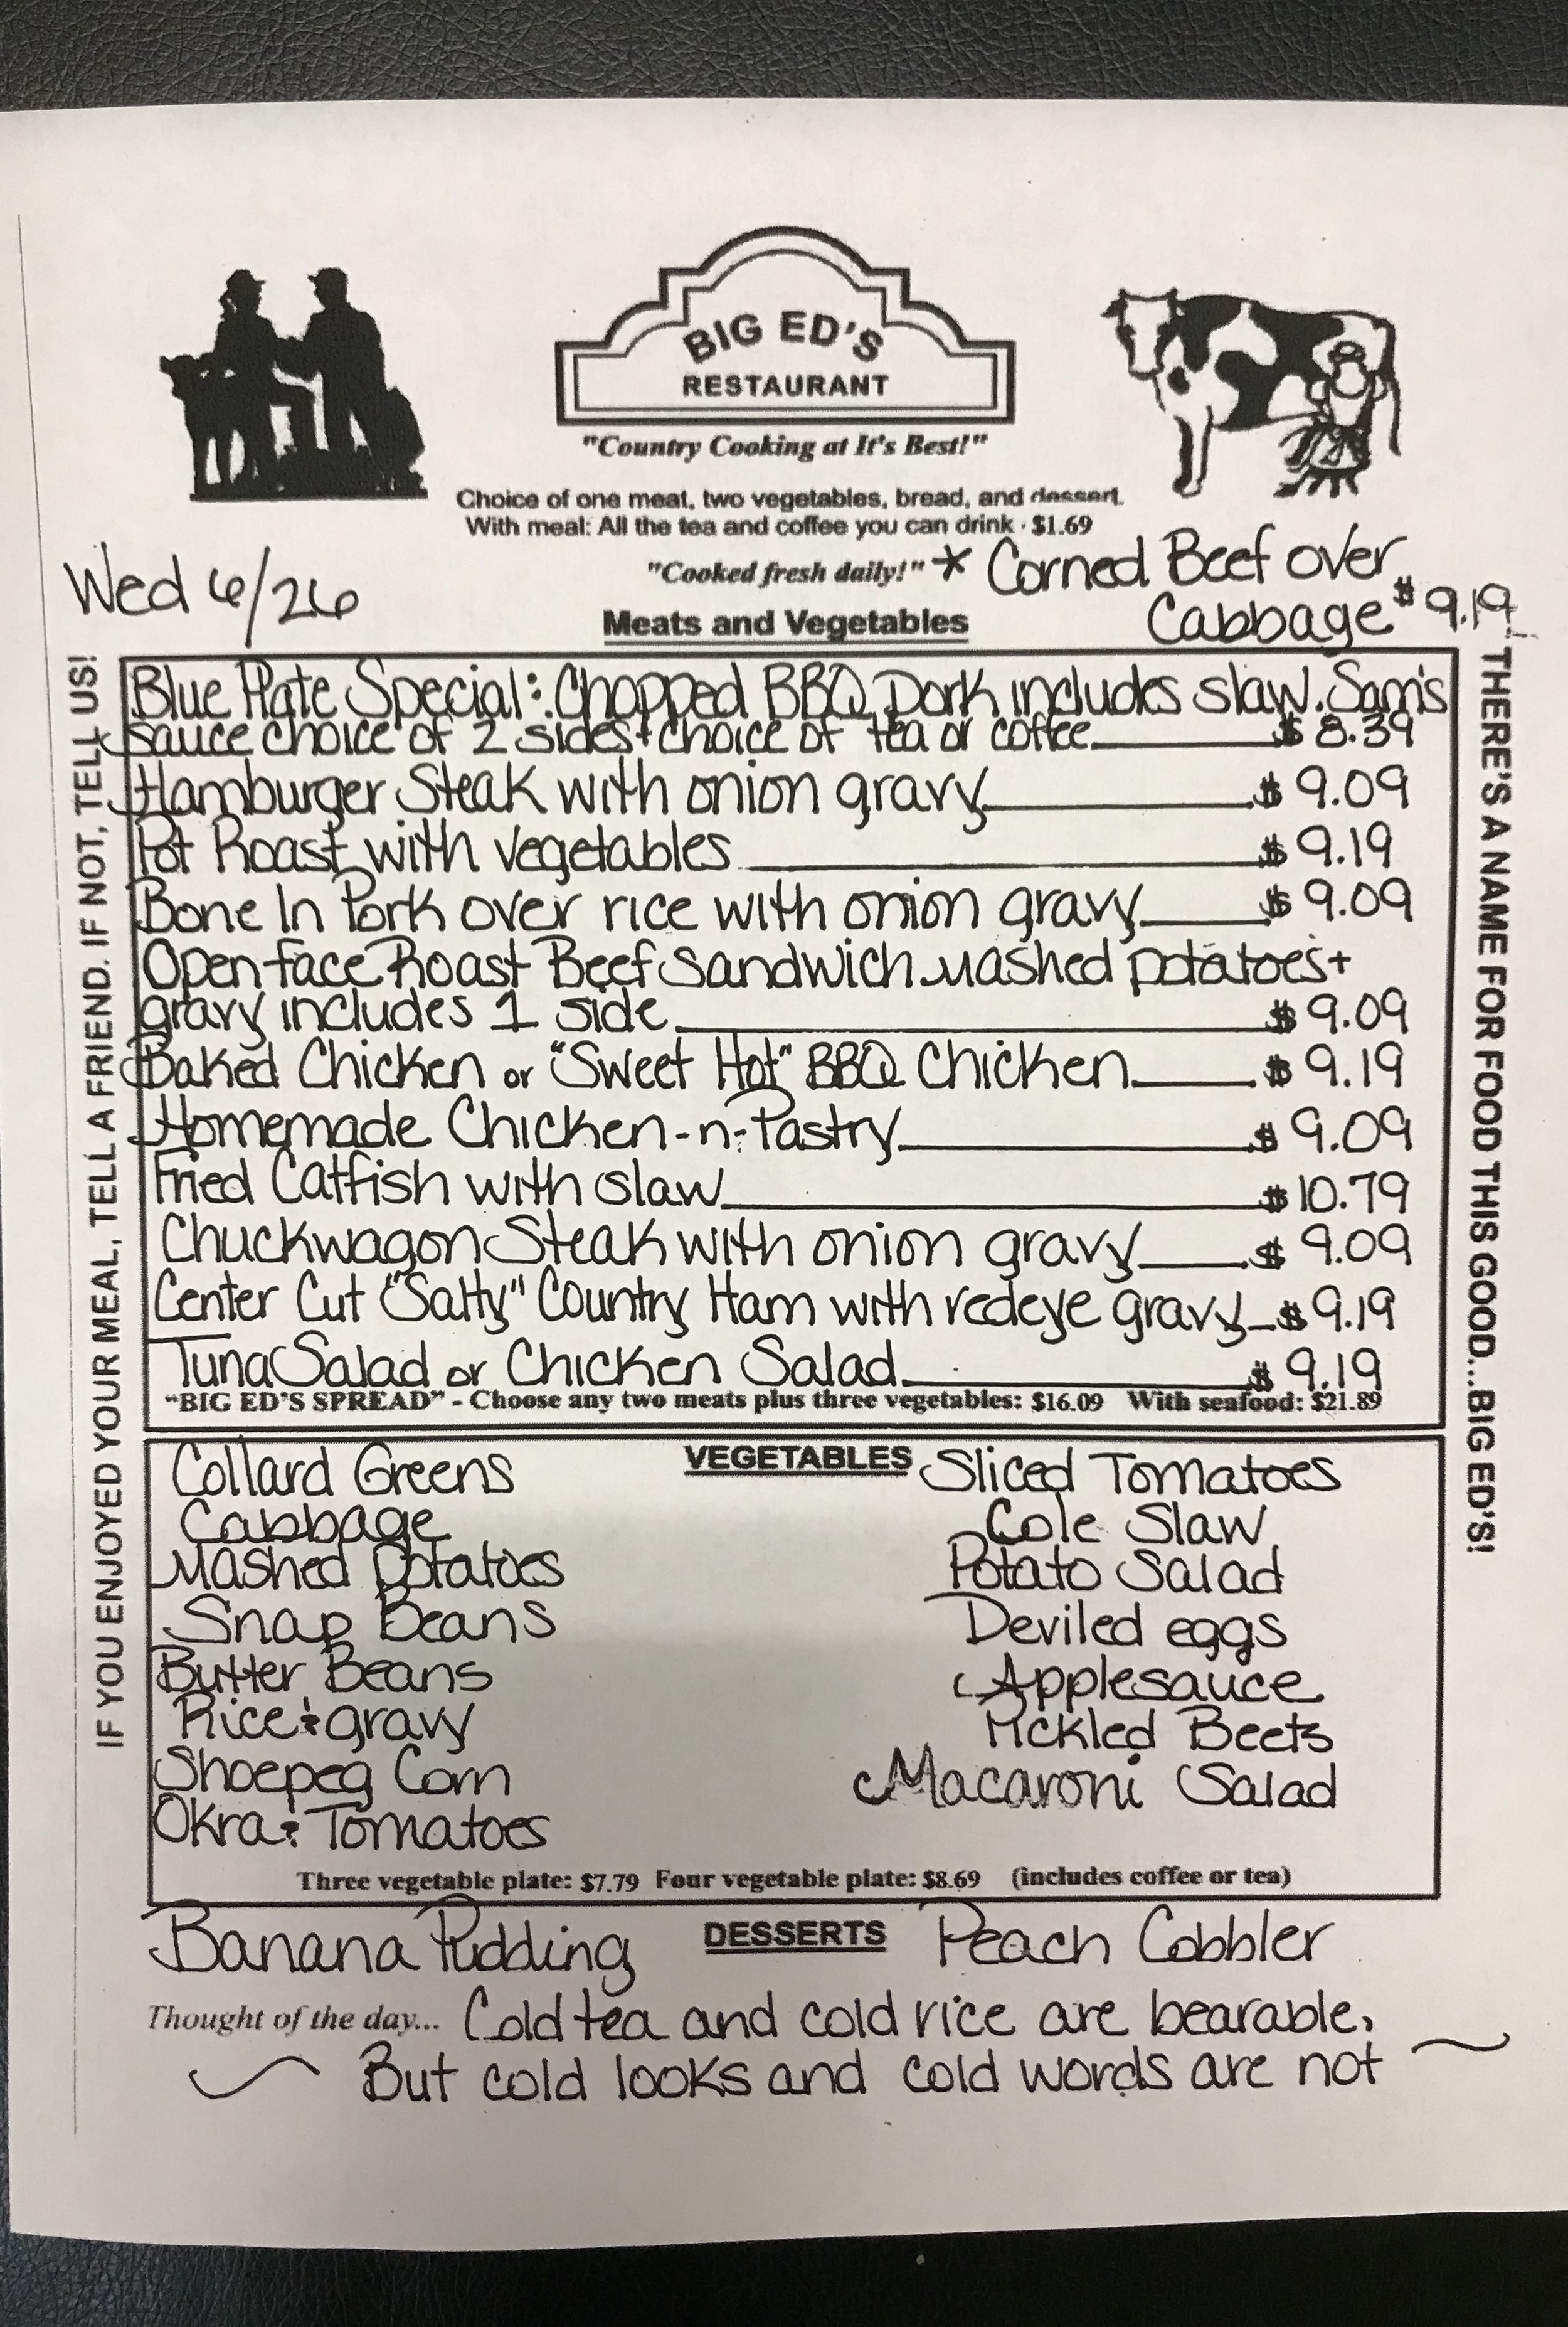 BIG ED'S
RESTAURANT
"Country Cooking at It's Best!"
Choice of one meat, two vegetables, bread, and dessert.
With meal: All the tea and coffee you can drink · $1.69
Wed 6/26
"Cooked fresh daily!" * Corned Beef over
Cabbage $9.19
Meats and Vegetables
IF YOU ENJOYED YOUR MEAL, TELL A FRIEND. IF NOT, TELL US!
THERE'S A NAME FOR FOOD THIS GOOD...BIG ED'S!
Blue Plate Special: Chopped BBQ Pork includes slaw. Sam's
sauce choice of 2 sides + choice of tea or coffee $8.39
Hamburger Steak with onion gravy $9.09
Pot Roast with vegetables $9.19
Bone In Pork over rice with onion gravy $9.09
Open face Roast Beef Sandwich Mashed potatoes +
gravy includes 1 side $9.09
Baked Chicken or "Sweet Hot" BBQ Chicken $9.19
Homemade Chicken-n-Pastry $9.09
Fried Catfish with slaw $10.79
Chuckwagon Steak with onion gravy $9.09
Center Cut "Salty" Country Ham with redeye gravy $9.19
Tuna Salad or Chicken Salad $9.19
"BIG ED'S SPREAD" - Choose any two meats plus three vegetables: $16.09 With seafood: $21.89
VEGETABLES
Collard Greens
Cabbage
Mashed Potatoes
Snap Beans
Butter Beans
Rice & gravy
Shoepeg Corn
Okra & Tomatoes
Sliced Tomatoes
Cole Slaw
Potato Salad
Deviled eggs
Applesauce
Pickled Beets
Macaroni Salad
Three vegetable plate: $7.79 Four vegetable plate: $8.69 (includes coffee or tea)
Banana Pudding DESSERTS Peach Cobbler
Thought of the day... Cold tea and cold rice are bearable,
But cold looks and cold words are not